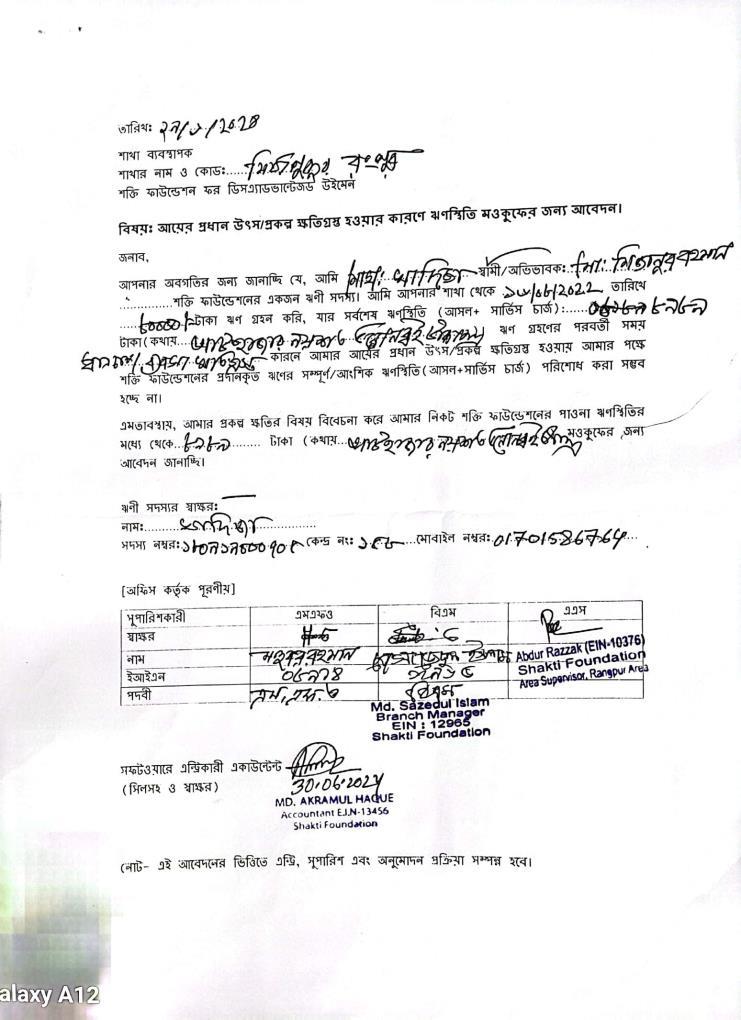 তারিখ:
শাখা ব্যবস্থাপক
শাখার নাম ও কোড:...... মিঠাপুকুর রংপুর
শক্তি ফাউন্ডেশন ফর ডিসএ্যাডভান্টেজড উইমেন
বিষয়: আয়ের প্রধান উৎস/প্রকল্প ক্ষতিগ্রস্থ হওয়ার কারণে ঋণস্থিতি মওকুফের জন্য আবেদন।
জনাব,
আপনার অবগতির জন্য জানাচ্ছি যে, আমি মোছা: খাদিজা স্বামী/অভিভাবক: মো: মিজানুর রহমান
শক্তি ফাউন্ডেশনের একজন ঋণী সদস্য। আমি আপনার শাখা থেকে তারিখে
৮০০০০/- টাকা ঋণ গ্রহন করি, যার সর্বশেষ ঋণস্থিতি (আসল+ সার্ভিস চার্জ):
টাকা(কথায় ঋণ গ্রহণের পরবর্তী সময়
কারনে আমার আয়ের প্রধান উৎস/প্রকল্প ক্ষতিগ্রস্থ হওয়ায় আমার পক্ষে
শক্তি ফাউন্ডেশনের প্রদানকৃত ঋণের সম্পূর্ণ/আংশিক ঋণস্থিতি(আসল+সার্ভিস চার্জ) পরিশোধ করা সম্ভব
হচ্ছে না।
এমতাবস্থায়, আমার প্রকল্প ক্ষতির বিষয় বিবেচনা করে আমার নিকট শক্তি ফাউন্ডেশনের পাওনা ঋণস্থিতির
মধ্যে থেকে...৮৯৮৯......... টাকা (কথায়... মওকুফের জন্য
আবেদন জানাচ্ছি।
ঋণী সদস্যর স্বাক্ষর:
নাম:......... খাদিজা ..................
সদস্য নম্বর: কেন্দ্র নং: মোবাইল নম্বর: 01701586764...
[অফিস কর্তৃক পূরণীয়]
সুপারিশকারী এমএফও বিএম এএস
স্বাক্ষর
নাম Abdur Razzak (EIN-10376)
ইআইএন Shakti Foundation
Area Supervisor, Rangpur Area
পদবী এম,এফ,ও বিএম
Md. Sazedul Islam
Branch Manager
EIN : 12965
Shakti Foundation
সফটওয়ারে এন্ট্রিকারী একাউন্টেন্ট
(সিলসহ ও স্বাক্ষর) 30.06.2024
MD. AKRAMUL HAQUE
Accountant E.I.N-13456
Shakti Foundation
নোট- এই আবেদনের ভিত্তিতে এন্ট্রি, সুপারিশ এবং অনুমোদন প্রক্রিয়া সম্পন্ন হবে।
alaxy A12